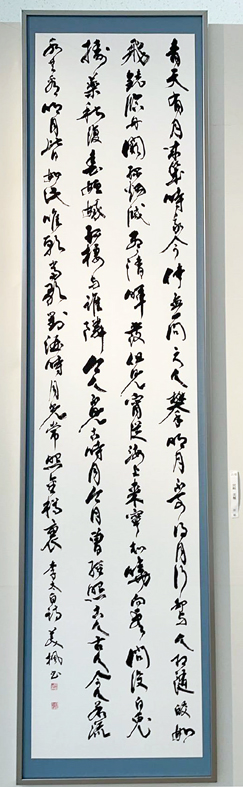 青天有月来幾時我今停盃一問之人攀明月不可得月行却与人相随皎如
飛鏡臨丹闕緑烟滅盡清輝發但見宵從海上来寧知曉向雲間没白兔
擣薬秋復春嫦娥孤棲与誰隣今人不見古時月今月曽経照古人古人今人若流
水共看明月皆如此唯願當歌對酒時月光常照金樽裏 李太白詩 美楓書